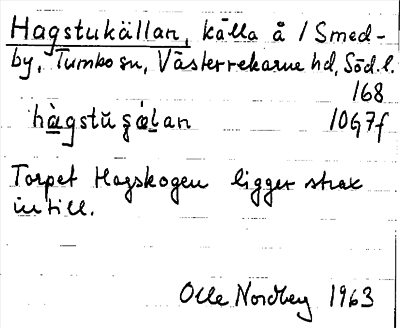 Hagstukällan, källa å / Smed-
by, Tumbo sn, Västerrekarne hd, Söd.l.
168
hàgstŭ ɕáļan 10G7f
Torpet Hagskogen ligger strax
intill.
Olle Nordberg 1963